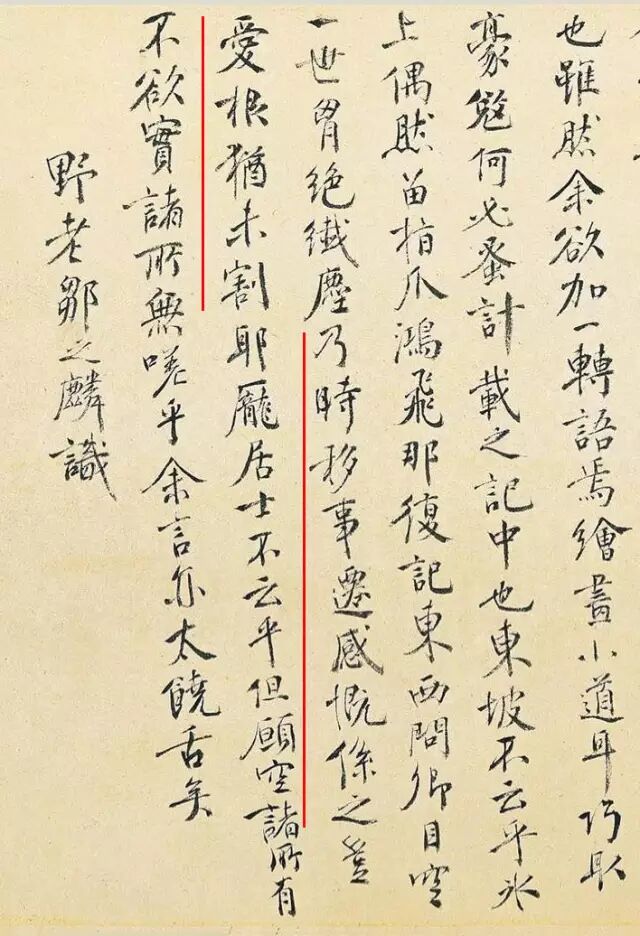 也雖然余欲加一轉語焉繪畫小道耳巧取
豪敓何必蚤計載之記中也東坡不云乎氷
上偶然留指爪鴻飛那復記東西問卿目空
一世胷絕纖塵乃時移事遷感慨係之豈
愛根猶未割耶龐居士不云乎但願空諸所有
不欲實諸所無嗟乎余言亦太饒舌矣
野老鄒之麟識